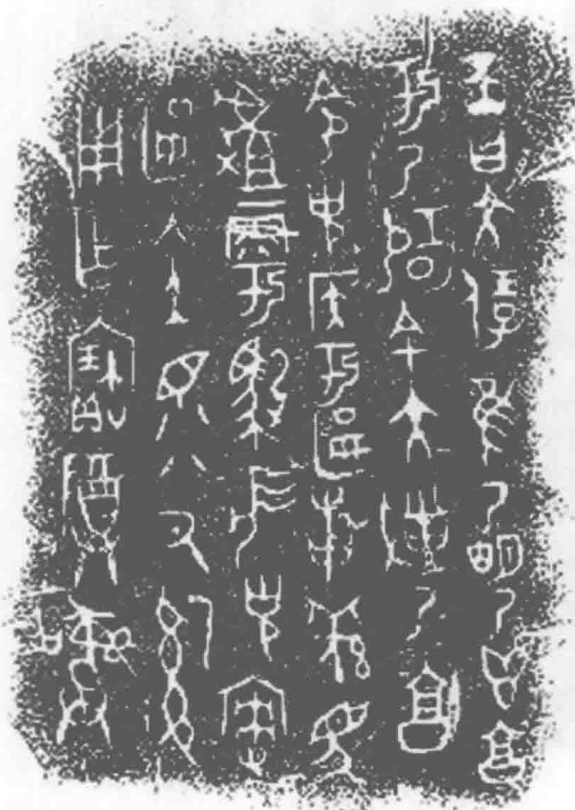 王曰大保隹乃明乃鬯享
于乃辟余大對乃享
令克侯于匽旃羌馬
𠭯雩馭微克
匽入土眔氒𤔲
用乍寶尊彝